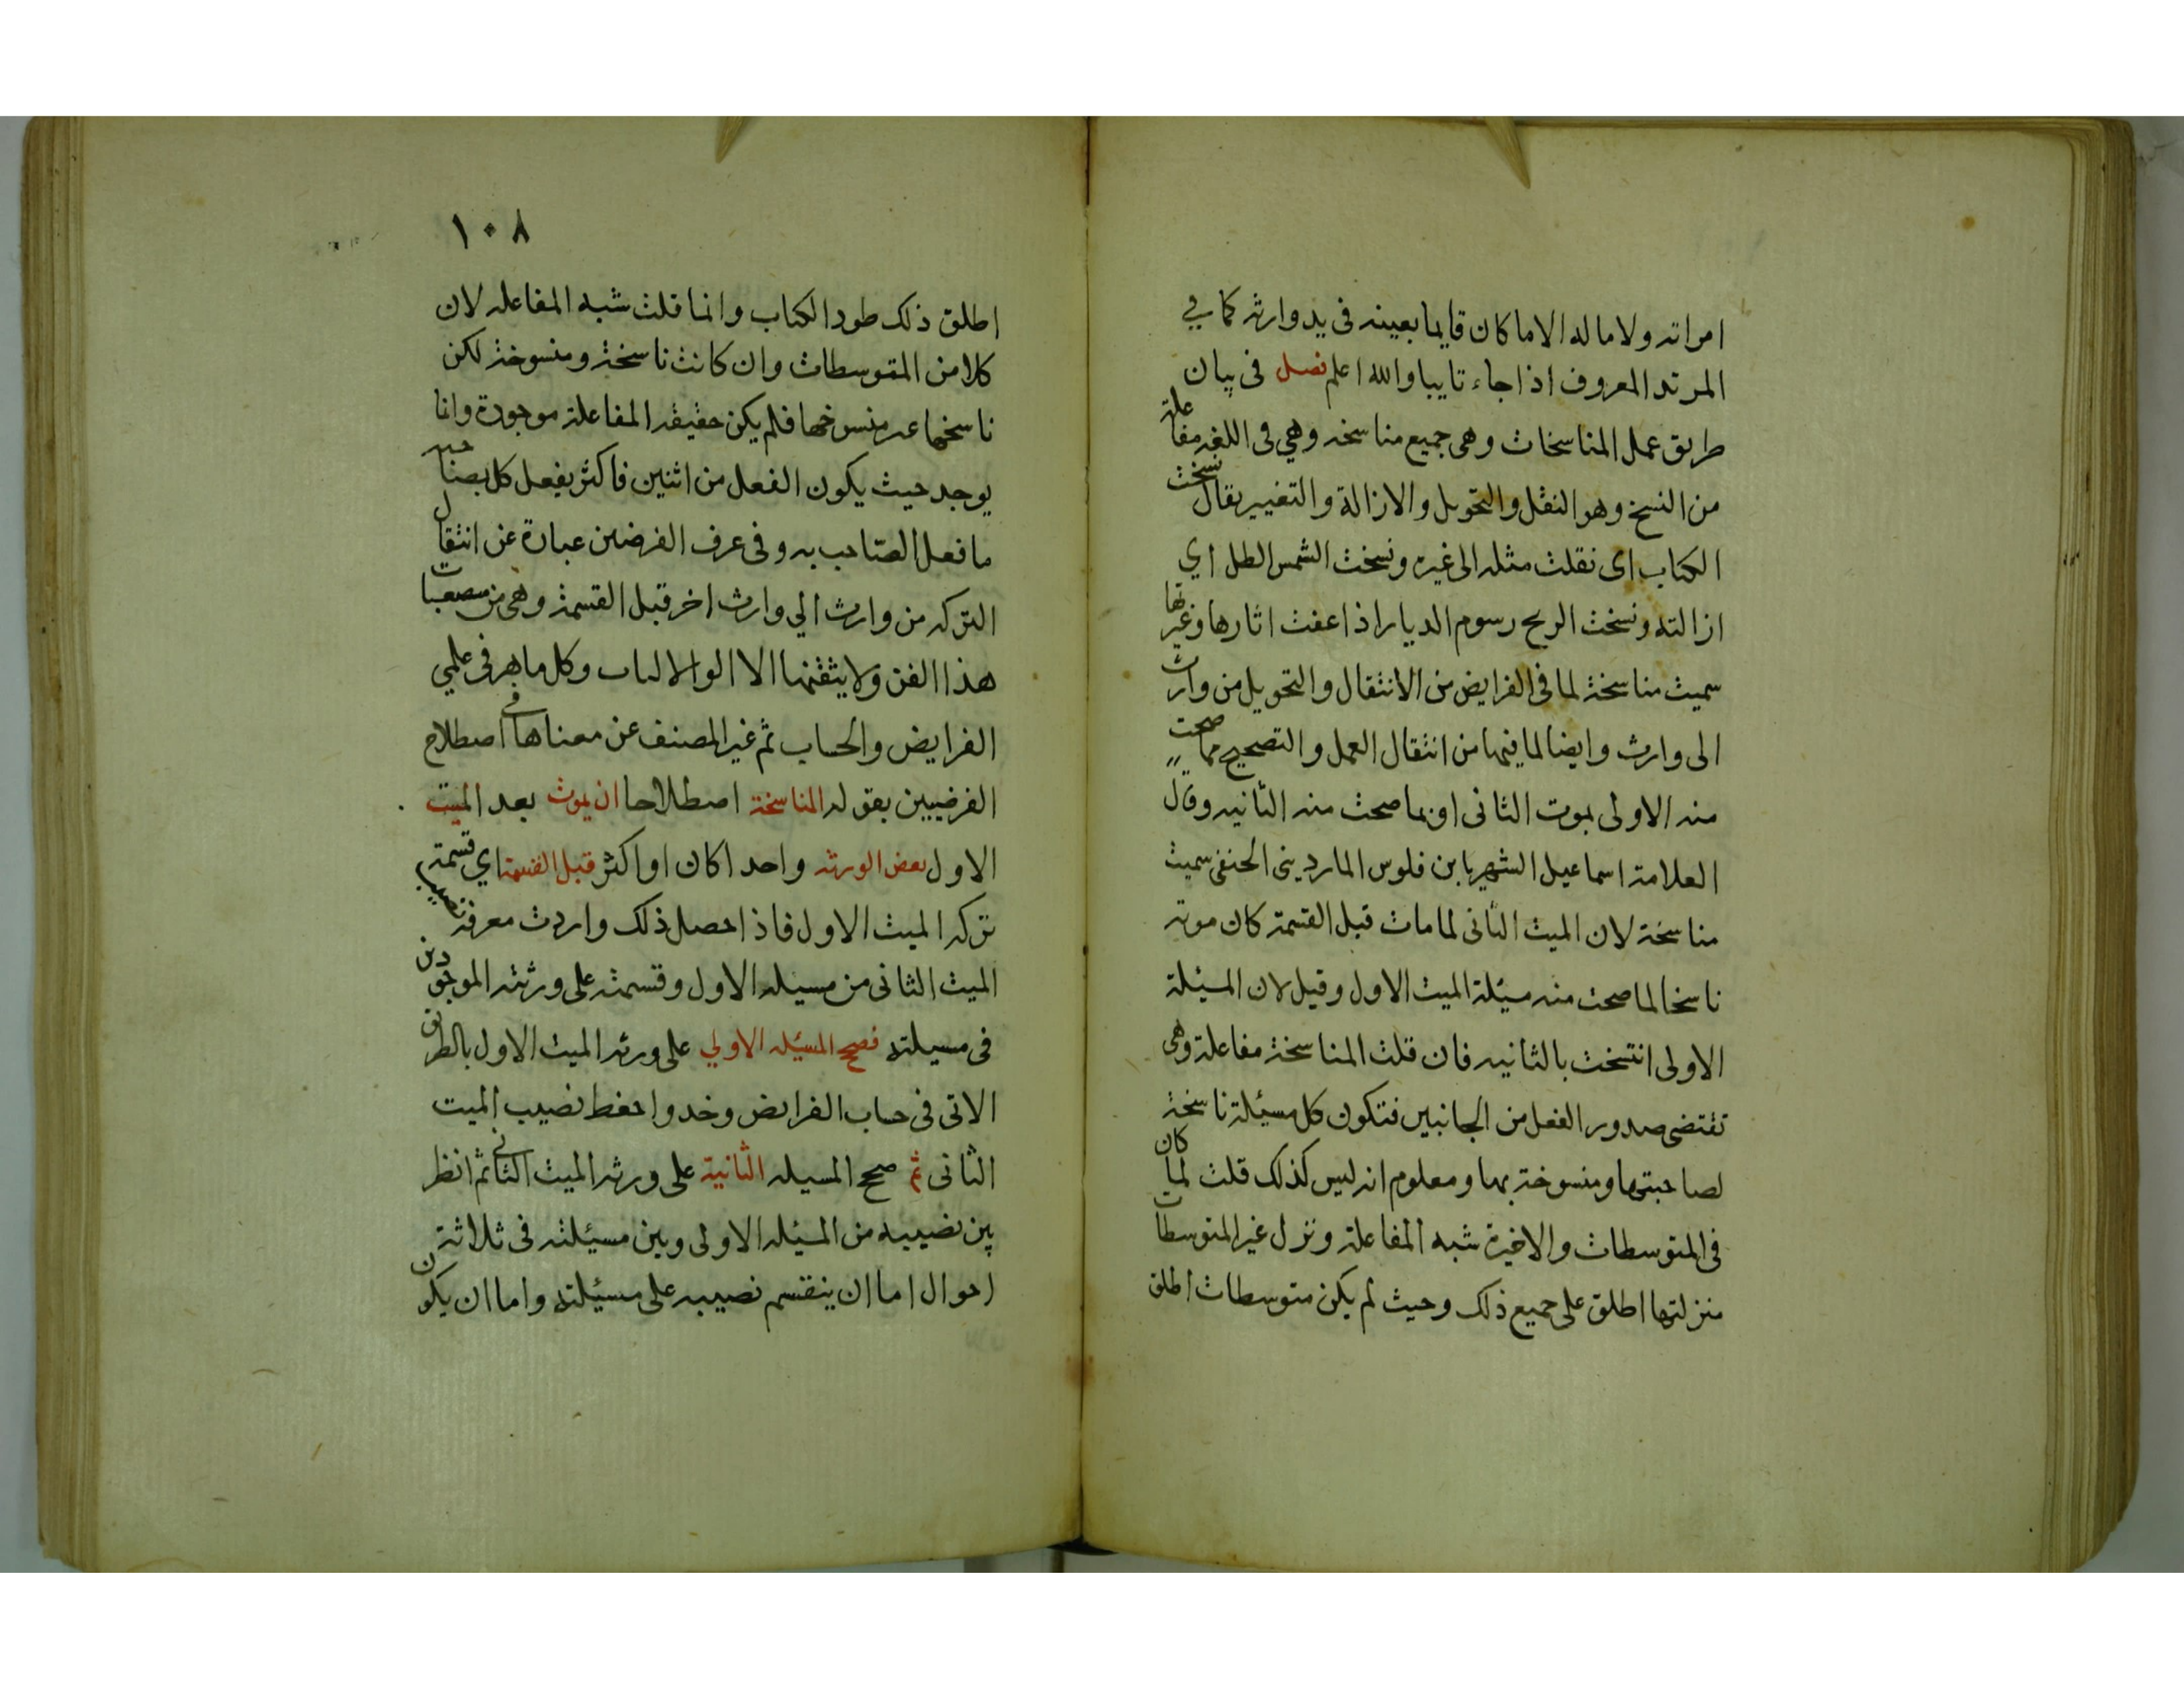 امراته ولا ماله الا ما كان قايما بعينه فى يد وارثه كما في
المرتد المعروف اذا جاء تايبا والله اعلم فصل فى بيان
طريق عمل المناسخات وهى جميع مناسخه وهي فى اللغه مفاعلة
من النسخ وهو النقل والتحويل والازالة والتغيير يقال نسخت
الكتاب اى نقلت مثله الى غيره ونسخت الشمس الطل اي
ازالته ونسخت الريح رسوم الديار اذا عفت اثارها وغيرتها
سميت مناسخة لما فى الفرايض من الانتقال والتحويل من وارث
الى وارث وايضا لما فيها من انتقال العمل والتصحيح مما صحت
منه الاولى بموت الثانى او بما صحت منه الثانيه وقال
العلامة اسماعيل الشهير بابن فلوس الماردينى الحنفى سميت
مناسخة لان الميت الثانى لما مات قبل القسمة كان موته
ناسخا لما صحت منه مسئلة الميت الاول وقيل لان المسئلة
الاولى انتسخت بالثانيه فان قلت المناسخة مفاعلة وهى
تقتضى صدور الفعل من الجانبين فتكون كل مسئلة ناسخة
لصاحبتها ومنسوخة بها ومعلوم انه ليس كذلك قلت لما كان
فى المتوسطات والاخيرة شبه المفاعلة ونزل غير المتوسطات
منزلتها اطلق على جميع ذلك وحيث لم يكن متوسطات اطلق
١٠٨
اطلق ذلك طرد الكتاب وانما قلت شبه المفاعله لان
كلا من المتوسطات وان كانت ناسخة ومنسوخة لكن
ناسخها غير منسوخها فلم يكن حقيقه المفاعلة موجودة وانما
يوجد حيث يكون الفعل من اثنين فاكثر يفعل كل بصاحبه
ما فعل الصاحب به وفى عرف الفرضين عبارة عن انتقال
التركه من وارث الي وارث اخر قبل القسمة وهى من مصعبات
هذا الفن ولا يتقنها الا الوا الالباب وكل ماهر فى علمي
الفرايض والحساب ثم غير المصنف عن معناها فى اصطلاح
الفرضيين بقوله المناسخة اصطلاحا ان يموث بعد الميت
الاول بعض الورثه واحدا كان او اكثر قبل القسمة اي قسمة
تركه الميت الاول فاذا حصل ذلك واردت معرفة نصيب
الميث الثانى من مسيله الاول وقسمته على ورثته الموجودين
فى مسيلته فصحح المسئله الاولي على ورثه الميت الاول بالطريق
الاتى فى حساب الفرايض وخد واحفط نصيب الميت
الثانى ثم صحح المسيله الثانية على ورثه الميت الثانى ثم انظر
بين نصيبه من المسئله الاولى وبين مسئلته فى ثلاثة
احوال اما ان ينقسم نصيبه على مسئلته واما ان يكون